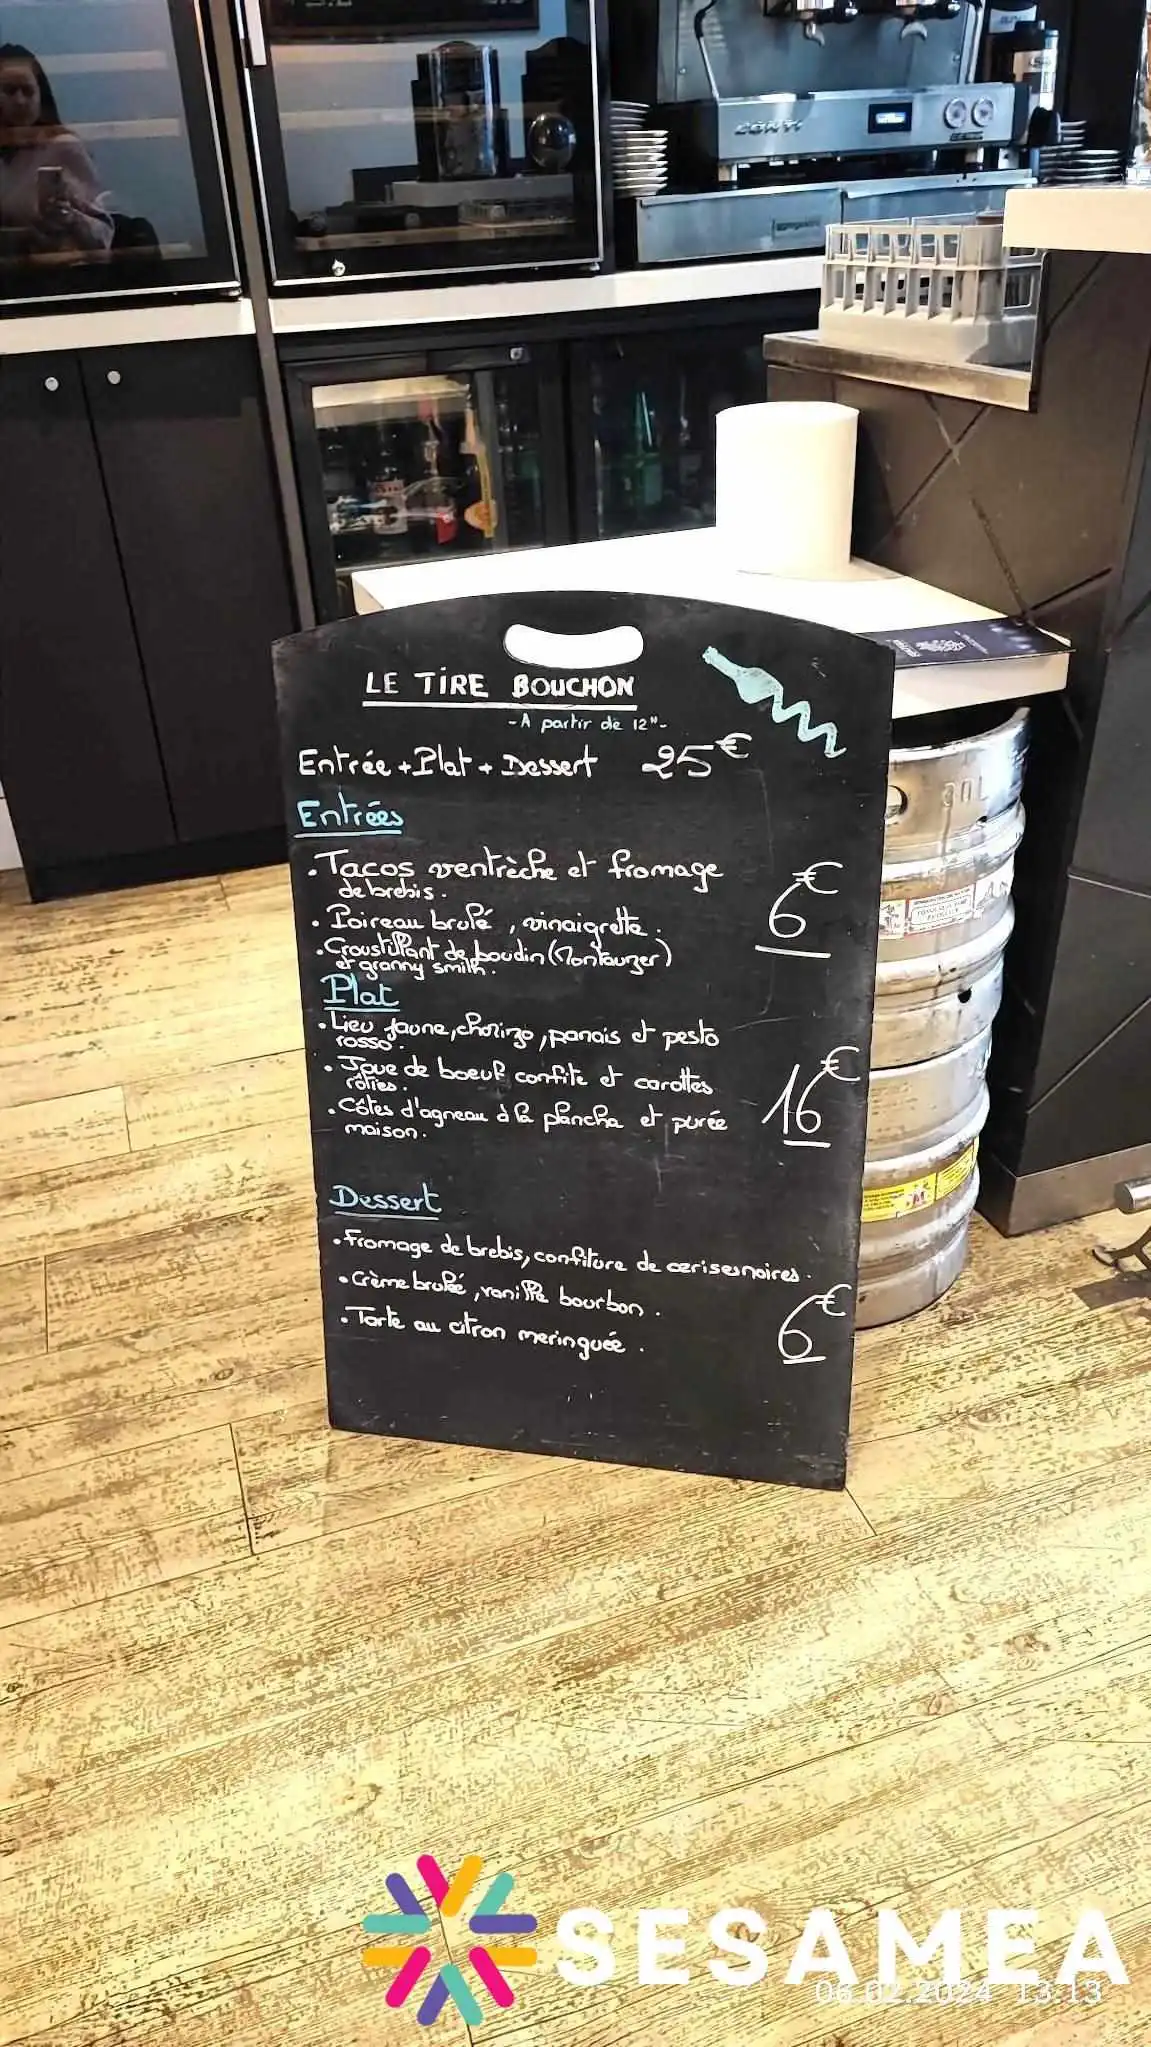 CONTI
LE TIRE BOUCHON
- A partir de 12H -
Entrée + Plat + Dessert 25€
Entrées
. Tacos ventrèche et fromage
de brebis.
. Poireau brulé, vinaigrette.
6€
. Croustillant de boudin (Montauzer)
et granny smith.
Plat
. Lieu jaune, chorizo, panais et pesto
rosso.
. Joue de boeuf confite et carottes
rôties.
16€
. Côtes d'agneau à la plancha et purée
maison.
Dessert
. Fromage de brebis, confiture de cerises noires.
. Crème brulée, vanille bourbon.
6€
. Tarte au citron meringuée.
30L
SESAMEA
06.02.2024 13:13